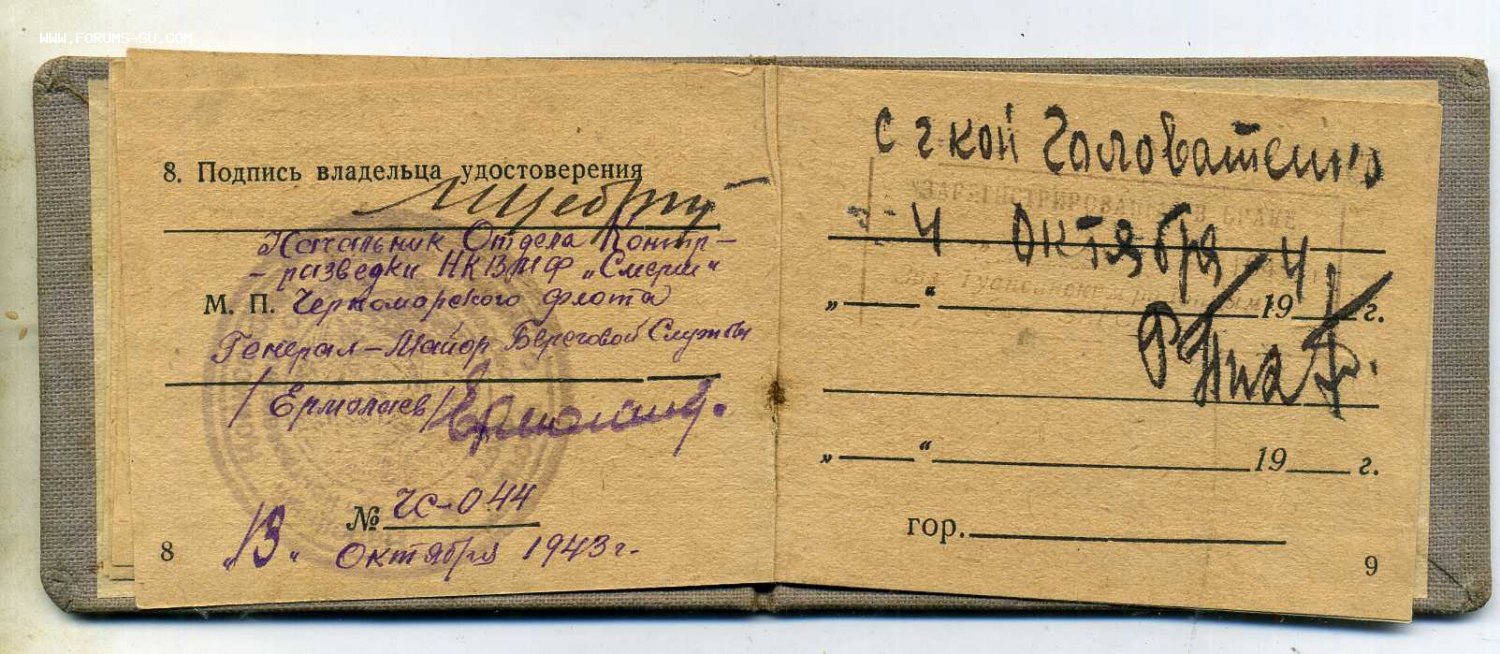 WWW.FORUMS-SU.COM
8. Подпись владельца удостоверения
Начальник Отдела Контр-
-разведки НКВМФ „Смерш“
М. П. Черноморского флота
Генерал-Майор Береговой Службы
/Ермолаев/
№ ЧС-044
„13“ Октября 1943 г.
8
с г-кой Головатенко
ЗАРЕГИСТРИРОВАН В БРАКЕ
4 Октября
„ “ 194 г.
„ “ 19 г.
гор.
9